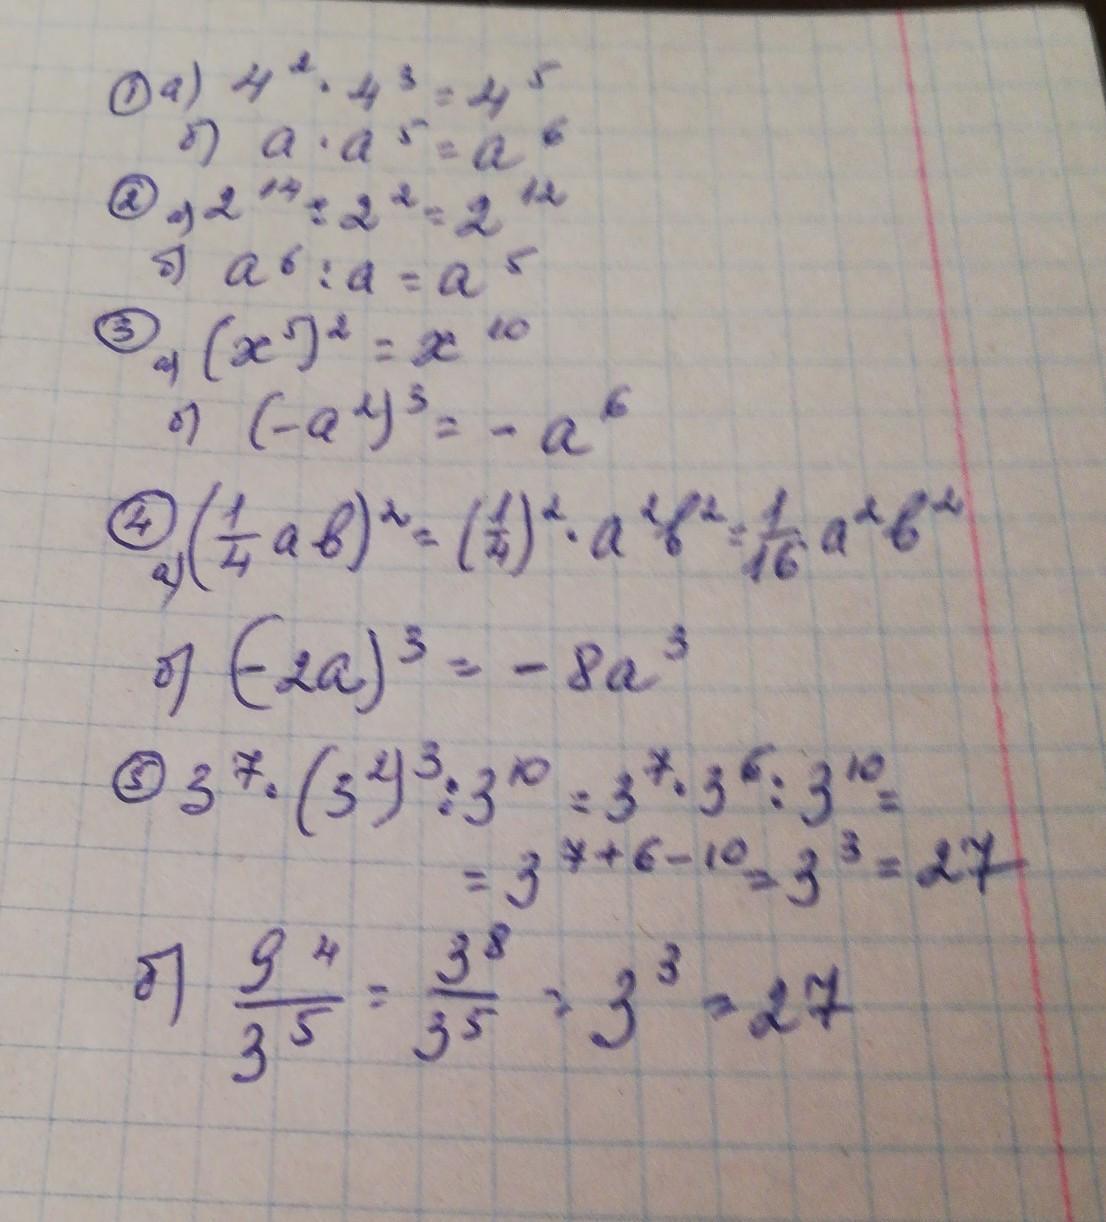 ① а) 4² · 4³ = 4⁵
б) a · a⁵ = a⁶
② а) 2¹⁴ : 2² = 2¹²
б) a⁶ : a = a⁵
③ а) (x⁵)² = x¹⁰
б) (-a²)³ = - a⁶
④ а) (1/4 ab)² = (1/4)² · a²b² = 1/16 a²b²
б) (-2a)³ = - 8a³
⑤ 3⁷ · (3²)³ : 3¹⁰ = 3⁷ · 3⁶ : 3¹⁰ =
= 3⁷⁺⁶⁻¹⁰ = 3³ = 27
б) 9⁴/3⁵ = 3⁸/3⁵ = 3³ = 27